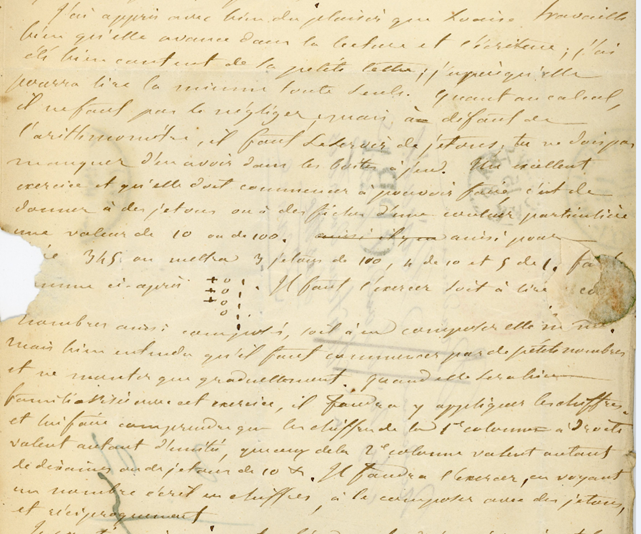 J'ai appris avec bien du plaisir que Louise travaille
bien qu'elle avance dans la lecture et l'écriture; j'ai
été bien content de la petite lettre; j'espère qu'elle
pourra lire la mienne toute seule. Quant au calcul,
il ne faut pas le négliger mais, à défaut de
l'arithmomètre, il faut se servir de jetons, tu ne dois pas
manquer d'en avoir dans les boites à jeu. Un excellent
exercice et qu'elle doit commencer à pouvoir faire c'est de
donner à des jetons ou à des fiches d'une couleur particulière
une valeur de 10 ou de 100. ainsi pour
345 on mettra 3 jetons de 100, 4 de 10 et 5 de 1.
comme ci-après Il faut l'exercer soit à lire
nombres ainsi composés, soit à en composer elle même
mais bien entendu qu'il faut commencer par de petits nombres
et ne monter que graduellement. Quand elle sera bien
familiarisée avec cet exercice, il faudra y appliquer les chiffres
et lui faire comprendre que les chiffres de la 1re colonne à droite
valent autant d'unités, que ceux de la 2e colonne valent autant
de dizaines ou de jetons de 10 &. Il faudra l'exercer, en voyant
un nombre écrit en chiffres, à le composer avec des jetons,
et réciproquement